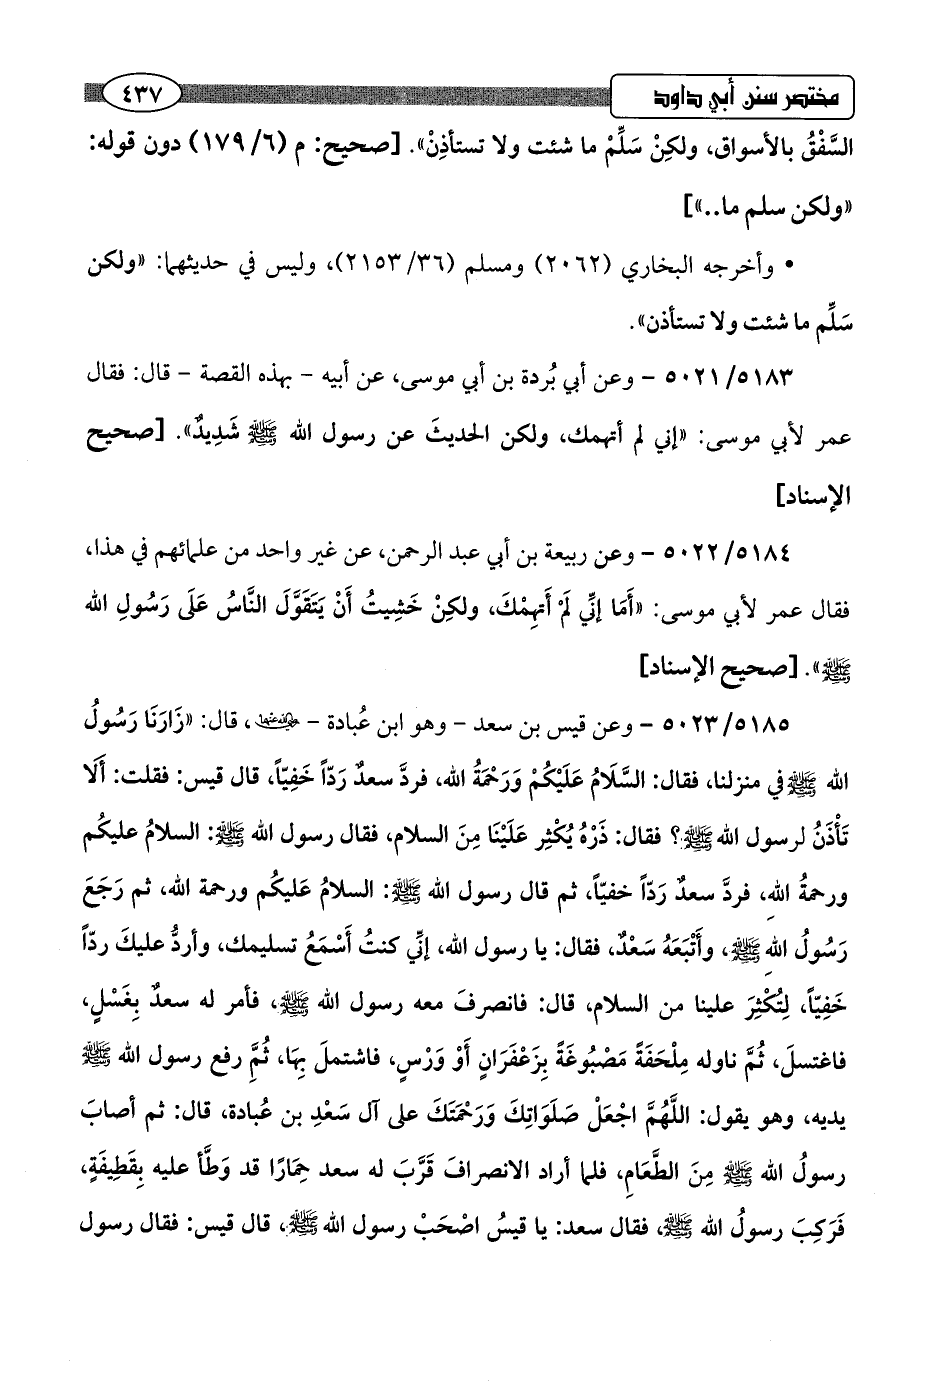 مختصر سنن أبي داود
٤٣٧
السَّفْقُ بالأسواق، ولكِنْ سَلِّمْ ما شئت ولا تستأذِنْ». [صحيح: م (٦/ ١٧٩) دون قوله:
«ولكن سلم ما..»]
• وأخرجه البخاري (٢٠٦٢) ومسلم (٣٦/ ٢١٥٣)، وليس في حديثهما: «ولكن
سَلِّم ما شئت ولا تستأذن».
٥٠٢١/٥١٨٣ - وعن أبي بُردة بن أبي موسى، عن أبيه - بهذه القصة - قال: فقال
عمر لأبي موسى: «إني لم أتهمك، ولكن الحديثَ عن رسول الله ﷺ شَدِيدٌ». [صحيح
الإسناد]
٥٠٢٢/٥١٨٤ - وعن ربيعة بن أبي عبد الرحمن، عن غير واحد من علمائهم في هذا،
فقال عمر لأبي موسى: «أَمَا إنِّي لَمْ أَتهِمْكَ، ولكِنْ خَشِيتُ أَنْ يَتَقَوَّلَ النَّاسُ عَلَى رَسُولِ الله
ﷺ». [صحيح الإسناد]
٥٠٢٣/٥١٨٥ - وعن قيس بن سعد - وهو ابن عُبادة - رضي الله عنهما، قال: «زَارَنَا رَسُولُ
الله ﷺ في منزلنا، فقال: السَّلَامُ عَلَيْكُمْ وَرَحْمَةُ الله، فردَّ سعدٌ رَدّاً خَفِيّاً، قال قيس: فقلت: أَلَا
تَأْذَنُ لرسول الله ﷺ؟ فقال: ذَرْهُ يُكْثِر عَلَيْنَا مِنَ السلام، فقال رسول الله ﷺ: السلامُ عليكم
ورحمةُ اللهِ، فردَّ سعدٌ رَدّاً خفيّاً، ثم قال رسول الله ﷺ: السلامُ عَليكُم ورحمة الله، ثم رَجَعَ
رَسُولُ اللهِ ﷺ، وأَتْبَعَهُ سَعْدٌ، فقال: يا رسول الله، إنِّي كنتُ أَسْمَعُ تسليمك، وأردُّ عليكَ ردّاً
خَفِيّاً، لِتُكْثِرَ علينا من السلام، قال: فانصرفَ معه رسول الله ﷺ، فأمر له سعدٌ بِغَسْلٍ،
فاغتسلَ، ثُمَّ ناوله مِلْحَفَةً مَصْبُوغَةً بِزَعْفَرَانِ أَوْ وَرْسٍ، فاشتملَ بِهَا، ثُمَّ رفع رسول الله ﷺ
يديه، وهو يقول: اللَّهُمَّ اجْعَلْ صَلَوَاتِكَ وَرَحْمَتَكَ على آل سَعْدِ بن عُبادة، قال: ثم أصابَ
رسولُ الله ﷺ مِنَ الطَّعَامِ، فلما أراد الانصرافَ قَرَّبَ له سعد حِمَارًا قد وَطَّأ عليه بِقَطِيفَةٍ،
فَرَكِبَ رسولُ الله ﷺ، فقال سعد: يا قيسُ اصْحَبْ رسول الله ﷺ، قال قيس: فقال رسول